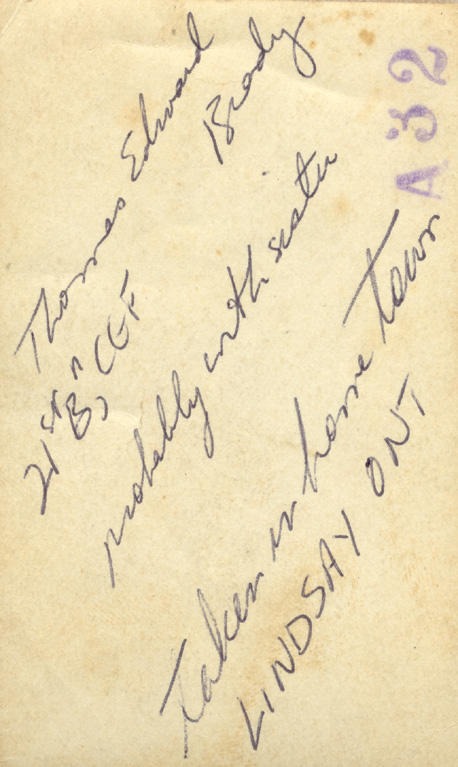 Thomas Edward
Brady
21st Bn CEF
probably with sister
taken in home town
LINDSAY ONT
A32